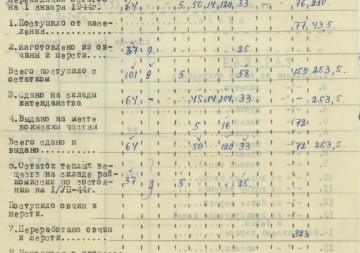 на 1 января 1944г. 64 5, 50, 14, 120, 33 76, 210.
1. Поступило от насе-
ления. 77, 43,5.
2. Изготовлено из ов-
чины и шерсти. 37 9 25
Всего поступило с
остатком 101 9 5 58 153 253,5.
3. Сдано на склады
интенданства 64 - 45, 14, 104, 33 - 253,5.
4. Выдано на месте
воинским частям 5 16 72
Всего сдано и
выдано. 64 50 120 33 72 253,5.
Остаток теплых ве-
ществ на складе рай-
комиссии по состоя-
нию на 1/УП-44г. 37 9 5 25
Поступило овчин и
шерсти.
7. Переработано овчин
и шерсти